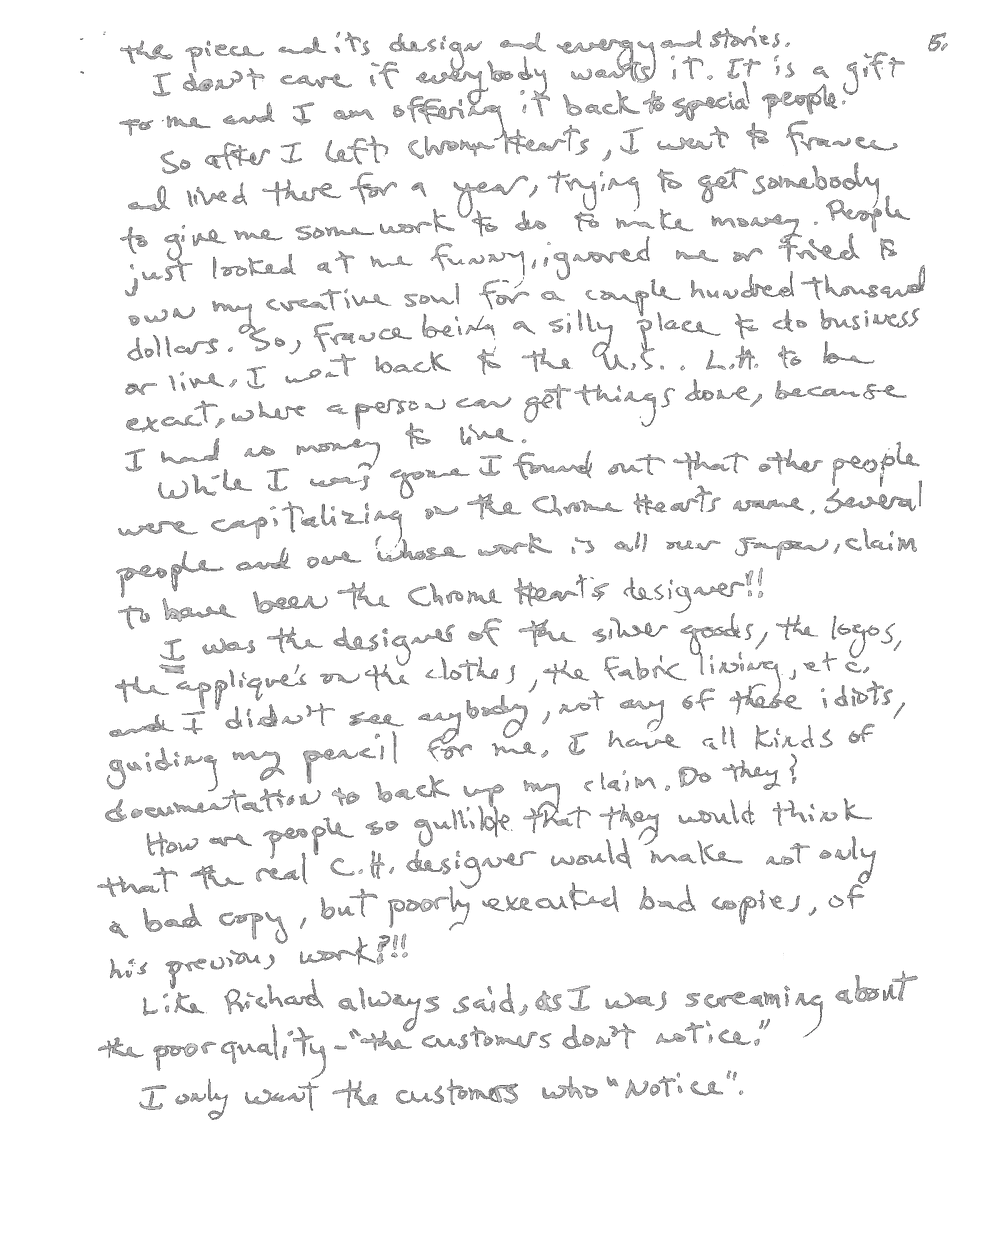 5.
the piece and its design and energy and stories.
I don't care if everybody wants it. It is a gift
to me and I am offering it back to special people.
So after I left Chrome Hearts, I went to France
and lived there for a year, trying to get somebody
to give me some work to do to make money. People
just looked at me funny, ignored me or tried to
own my creative soul for a couple hundred thousand
dollars. So, France being a silly place to do business
or live, I went back to the U.S.. L.A. to be
exact, where a person can get things done, because
I had no money to live.
While I was gone I found out that other people
were capitalizing on the Chrome Hearts name. Several
people and one whose work is all over Japan, claim
to have been the Chrome Hearts designer!!
I was the designer of the silver goods, the logos,
the applique's on the clothes, the fabric lining, etc.
and I didn't see anybody, not any of these idiots,
guiding my pencil for me. I have all kinds of
documentation to back up my claim. Do they?
How are people so gullible that they would think
that the real C.H. designer would make not only
a bad copy, but poorly executed bad copies, of
his previous work?!!
Like Richard always said, as I was screaming about
the poor quality - "the customers don't notice."
I only want the customers who "Notice".